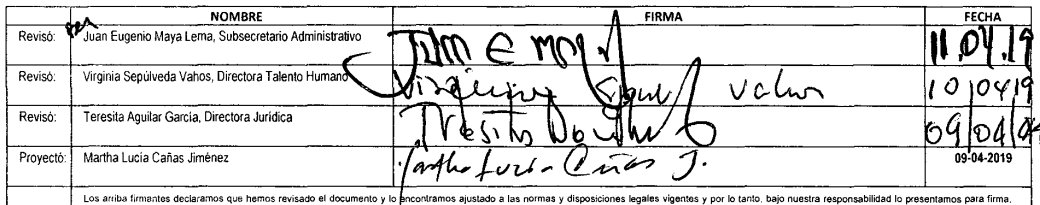 NOMBRE FIRMA FECHA
Revisó: Juan Eugenio Maya Lema, Subsecretario Administrativo Juan E Maya 11.04.19
Revisó: Virginia Sepúlveda Vahos, Directora Talento Humano Virginia Sepul Vahos 10/04/19
Revisó: Teresita Aguilar García, Directora Jurídica Teresita 09/04/
Proyectó: Martha Lucía Cañas Jiménez Martha Lucía Cañas J. 09-04-2019
Los arriba firmantes declaramos que hemos revisado el documento y lo encontramos ajustado a las normas y disposiciones legales vigentes y por lo tanto, bajo nuestra responsabilidad lo presentamos para firma.